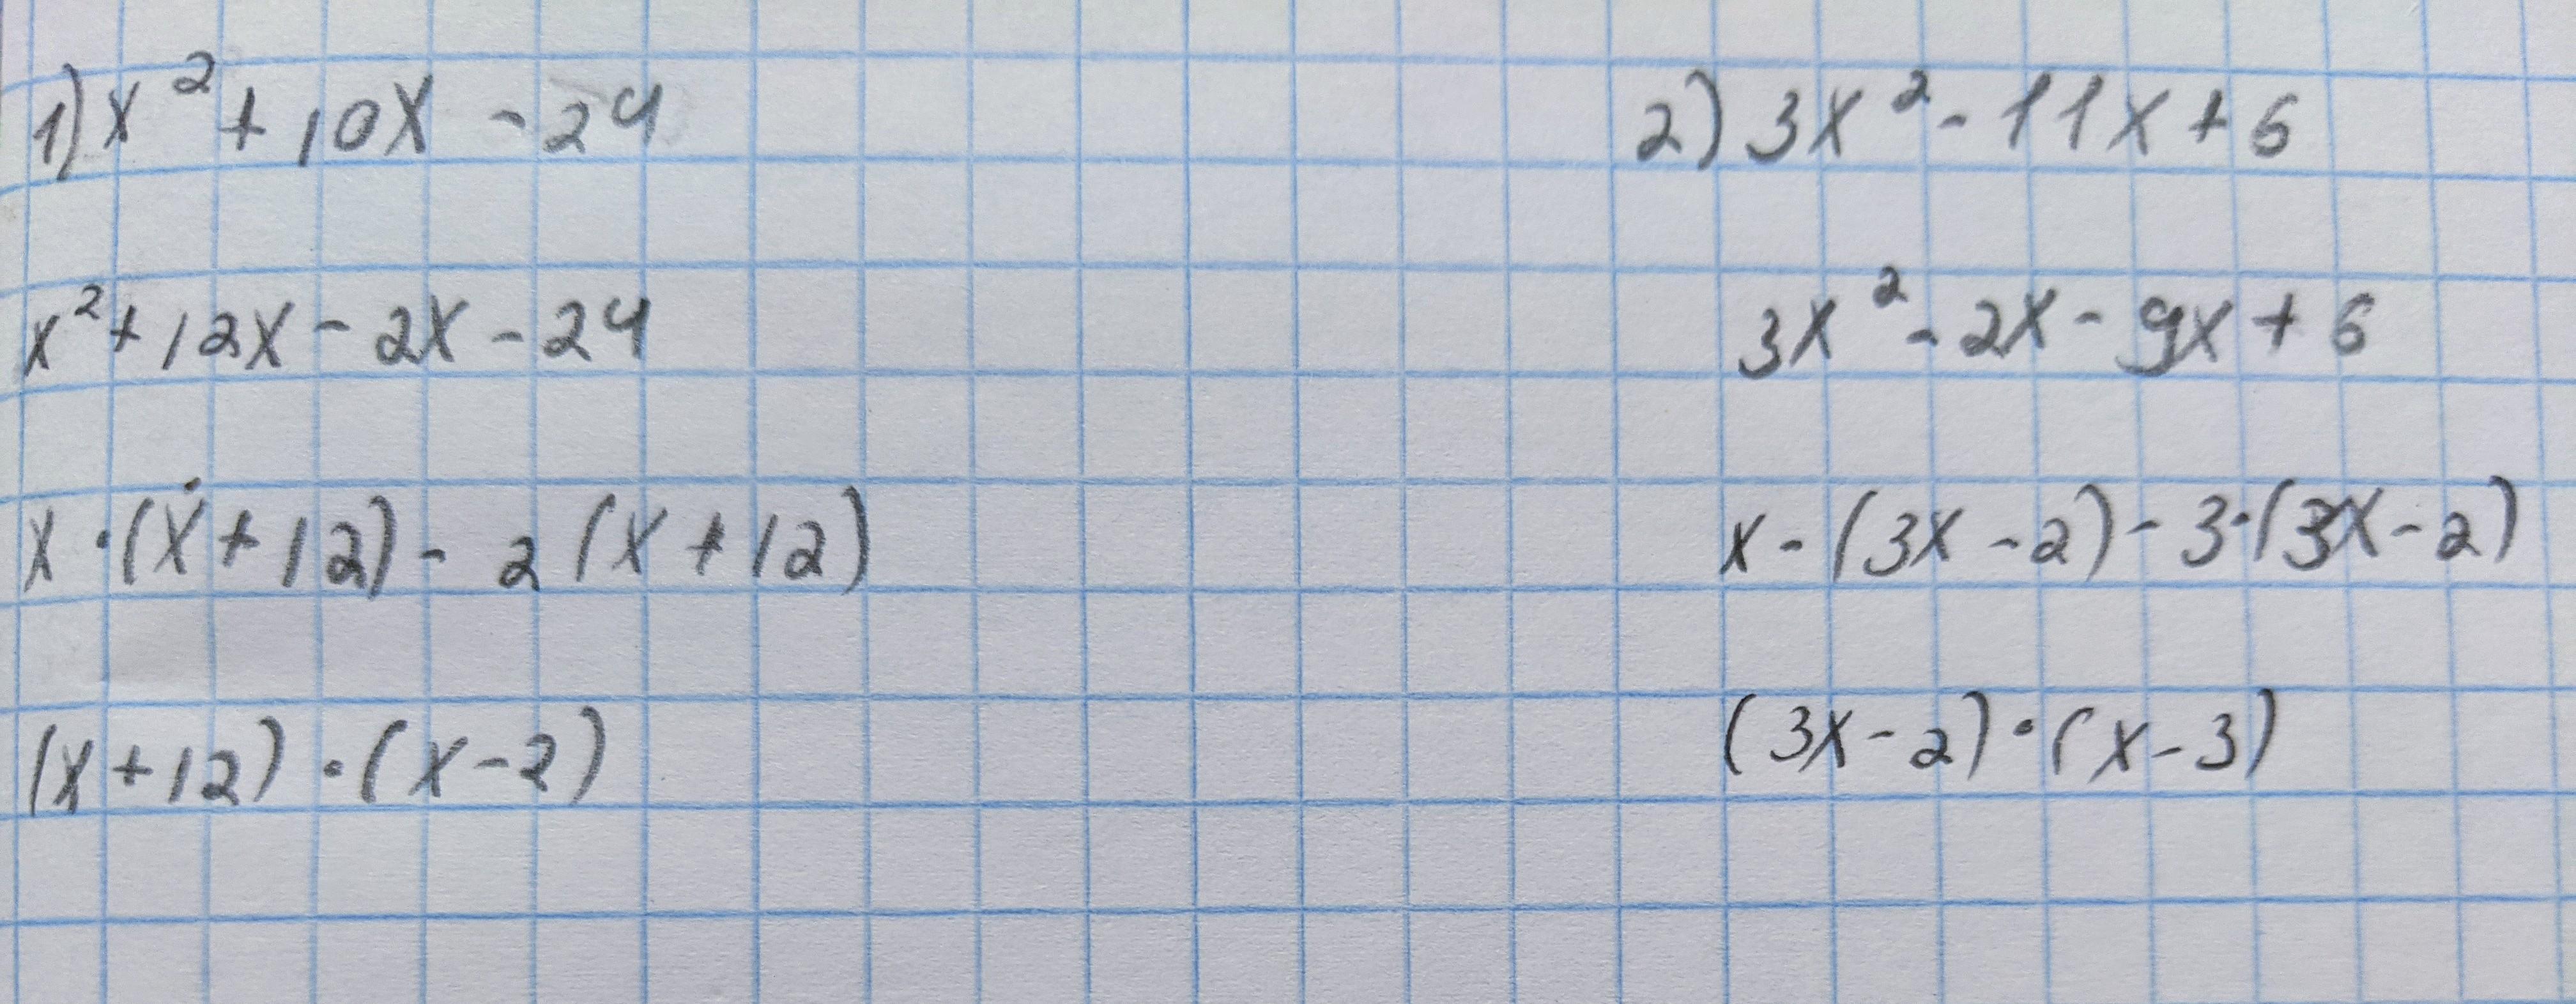 1) x² + 10x - 24
x² + 12x - 2x - 24
x · (x + 12) - 2 (x + 12)
(x + 12) · (x - 2)
2) 3x² - 11x + 6
3x² - 2x - 9x + 6
x - (3x - 2) - 3 · (3x - 2)
(3x - 2) · (x - 3)